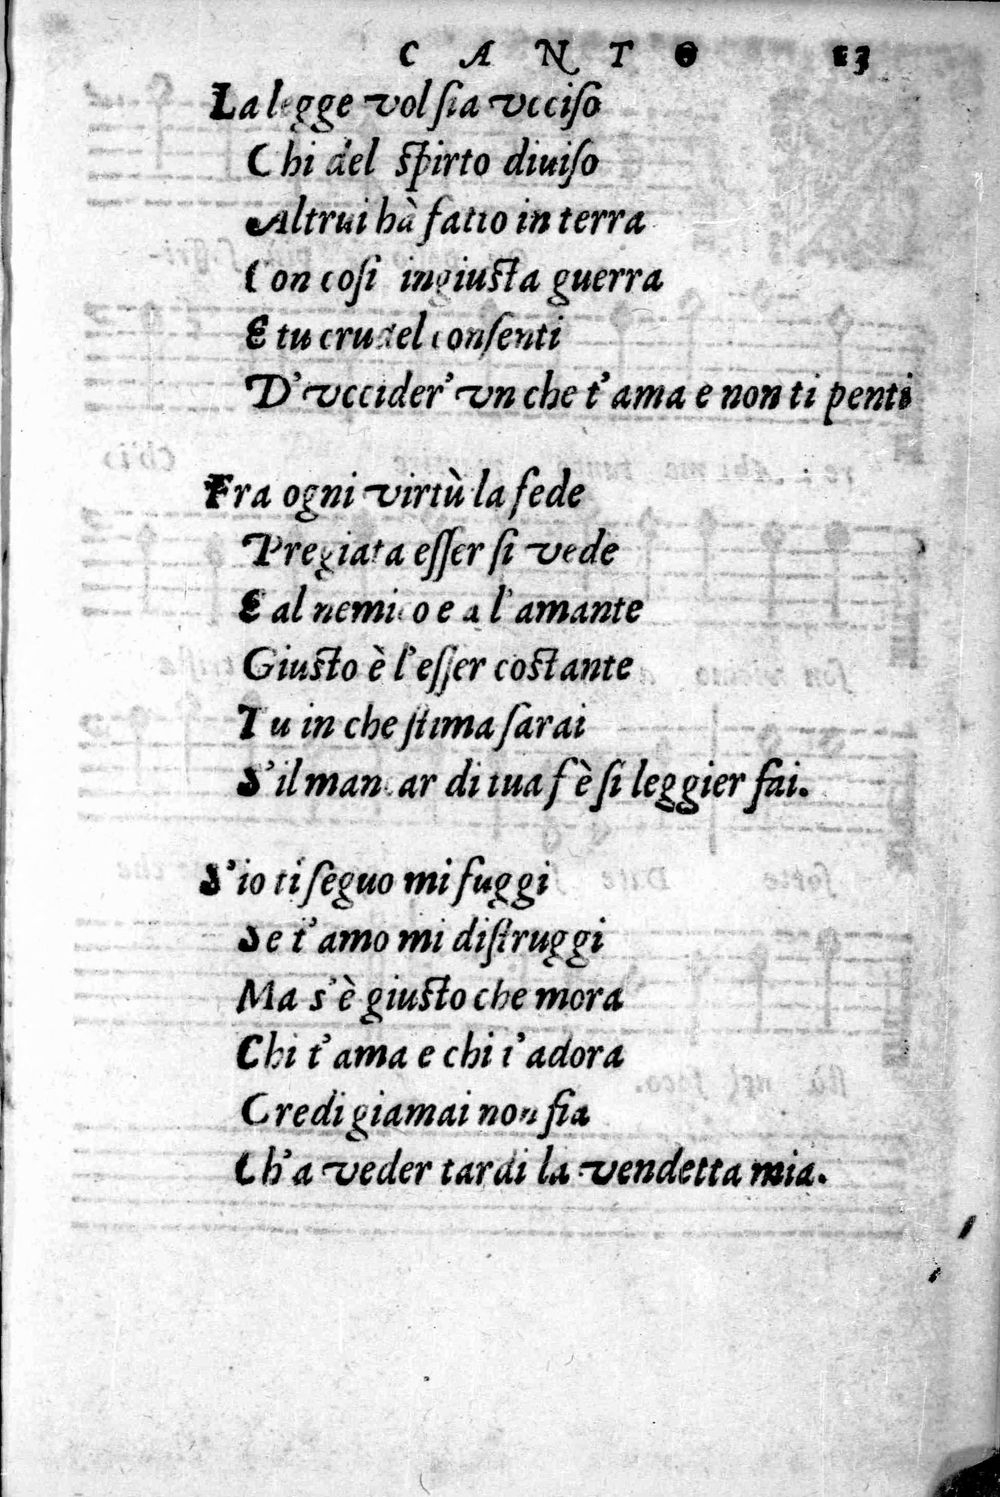 CANTO 13
La legge vol ſia vcciſo
Chi del ſpirto diuiſo
Altrui hà fatto in terra
Con coſi ingiuſta guerra
E tu crudel conſenti
D'vccider' vn che t'ama e non ti penti
Fra ogni virtù la fede
Pregiata eſſer ſi vede
E al nemico e a l'amante
Giuſto è l'eſſer coſtante
Tu in che ſtima ſarai
S'il mancar di tua fè ſi leggier fai.
S'io ti ſeguo mi fuggi
Se t'amo mi diſtruggi
Ma s'è giuſto che mora
Chi t'ama e chi t'adora
Credi giamai non ſia
Ch'a veder tardi la vendetta mia.